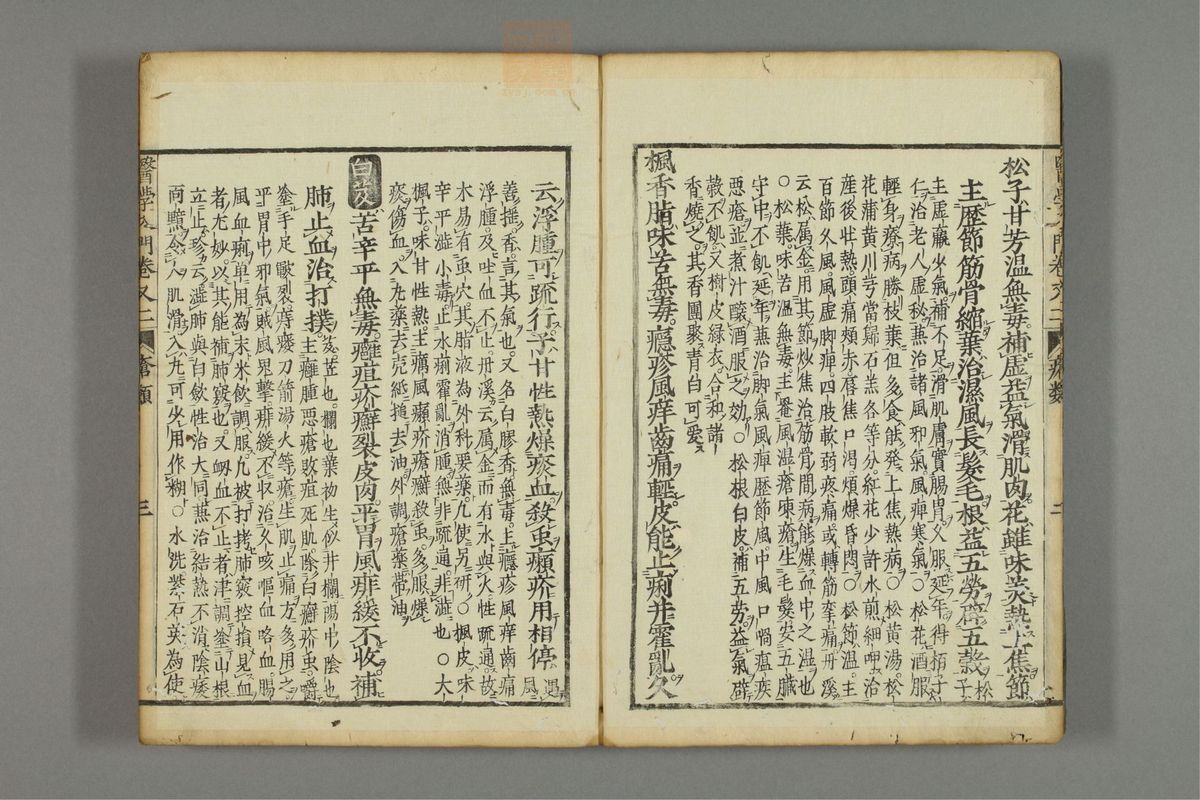 松子甘芳温無毒補虛益氣滑肌肉花雖味美熱上焦節
主歷節筋骨縮葉治濕風長髮毛根益五勞辟五穀
松子
主虛羸少氣補不足滑肌膚實腸門久服延年得栢子
仁治老人虛秘蒸治諸風邪氣風痺寒氣○松花酒服
輕身療病勝枝葉但多食能發上焦熱病○松黃湯松
花蒲黃川芎當歸石羔各等分紅花少許水煎細呷治
產後壯熱頭痛頰赤唇焦口渴煩燥昏悶○松節温主
百節久風風虛脚痺四肢軟弱疼痛或轉筋攣痛丹溪
云松属金用其節炒焦治筋骨間病能燥血中之濕也
○松葉味苦温無毒主風濕瘡凍瘡生毛髮安五臟
守中不飢延年蒸治脚氣風痺歷節風中風口喎瘟疾
惡瘡並煮汁釀酒服之効○松根白皮補五勞益氣辟
穀不飢又樹皮緑衣合和諸
香燒之其香團聚青白可愛
楓香脂味苦無毒癮疹風痒齒痛輕皮能止痢并霍亂久
云浮腫可疏行子甘性熱燥痰血殺虫癩疥用相停
遇風
善揺香言其氣也又名白膠香無毒主癮疹風痒齒痛
浮腫及吐血不止丹溪云属金而有水與火性疏通故
木易有虫穴其脂液為外科要藥凡使另研○楓皮味
辛平澁小毒止水痢霍亂消腫無非疏通非澁也○大
楓子味甘性熱主癘風癩疥瘡癬殺虫多服燥
痰傷血入丸藥去殻紙搥去油外調瘡藥帶油
白芨苦辛平無毒癰疽疥癬裂皮肉平胃風痱緩不收補
肺止血治打撲
芨芨也欄也葉初生似井欄陽中陰也
主癰腫惡瘡敗疽死肌除白癬疥虫嚼
塗手足皸裂痔瘻刀箭湯火等瘡生肌止痛方多用之
平胃中邪氣賊風鬼擊痱緩不収治久咳嘔血咯血腸
風血痢單用為末米飲調服凡被打拷肺竅控損見血
者尤妙以其能補肺竅也又衂血不止者津調塗山根
立止珍云澁肺與白斂性治大同蒸治結熱不消陰痿
面䵟令人肌滑入丸可少用作糊○水洗紫石英為使
醫學入門卷又二
瘡類
二
醫學入門卷又二
瘡類
三